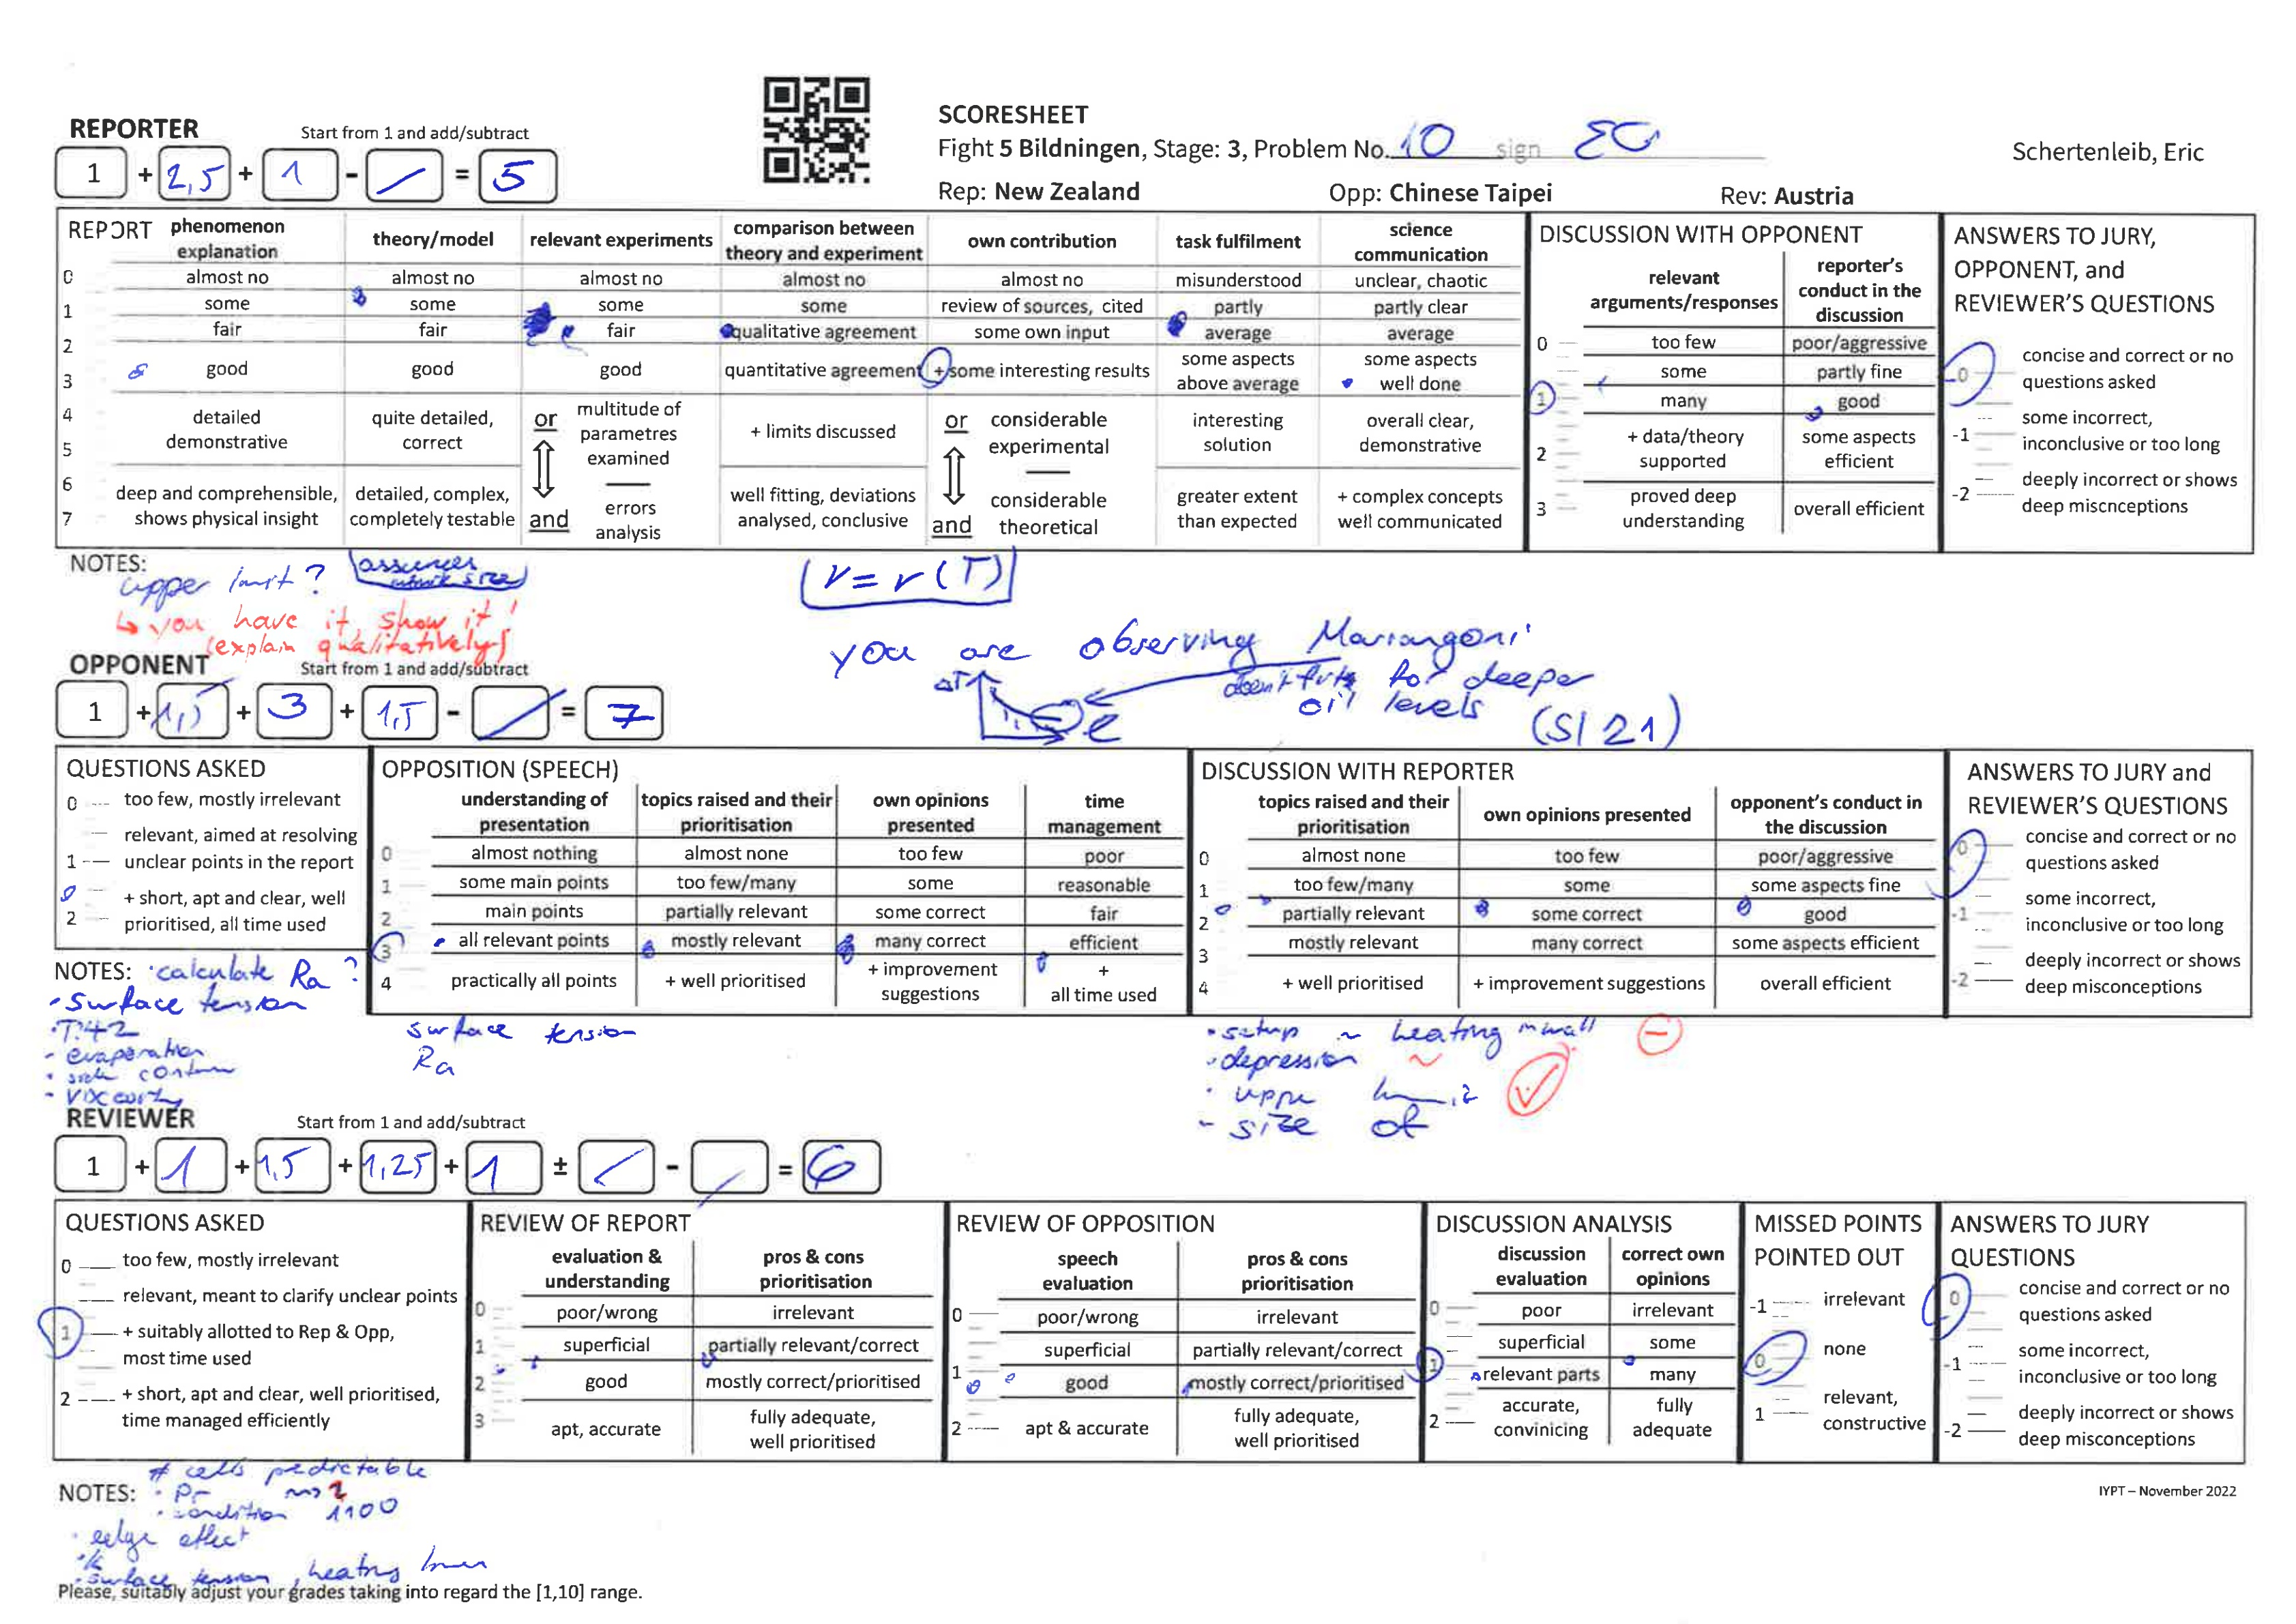 SCORESHEET
REPORTER Start from 1 and add/subtract
Fight 5 Bildningen, Stage: 3, Problem No. 10 sign
Schertenleib, Eric
1 + 2,5 + 1 - / = 5
Rep: New Zealand Opp: Chinese Taipei Rev: Austria
REPORT
phenomenon explanation
theory/model
relevant experiments
comparison between theory and experiment
own contribution
task fulfilment
science communication
0 almost no almost no almost no almost no almost no misunderstood unclear, chaotic
1 some some some some review of sources, cited partly partly clear
fair fair fair qualitative agreement some own input average average
2
3 good good good quantitative agreement + some interesting results some aspects above average some aspects well done
4 detailed demonstrative quite detailed, correct or multitude of parametres examined + limits discussed or considerable experimental interesting solution overall clear, demonstrative
5
6 deep and comprehensible, shows physical insight detailed, complex, completely testable and errors analysis well fitting, deviations analysed, conclusive and considerable theoretical greater extent than expected + complex concepts well communicated
7
DISCUSSION WITH OPPONENT
relevant arguments/responses
reporter's conduct in the discussion
0 too few poor/aggressive
some partly fine
1 many good
2 + data/theory supported some aspects efficient
3 proved deep understanding overall efficient
ANSWERS TO JURY, OPPONENT, and REVIEWER'S QUESTIONS
0 concise and correct or no questions asked
-1 some incorrect, inconclusive or too long
-2 deeply incorrect or shows deep miscnceptions
NOTES:
upper limit?
assumes
↳ you have it, show it!
(explain qualitatively)
r = r(T)
you are observing Marangoni
for deeper
oil levels
ΔT
(Sl 21)
OPPONENT Start from 1 and add/subtract
1 + 1,5 + 3 + 1,5 - / = 7
QUESTIONS ASKED
0 too few, mostly irrelevant
relevant, aimed at resolving
1 unclear points in the report
+ short, apt and clear, well
2 prioritised, all time used
OPPOSITION (SPEECH)
understanding of presentation
topics raised and their prioritisation
own opinions presented
time management
0 almost nothing almost none too few poor
1 some main points too few/many some reasonable
2 main points partially relevant some correct fair
3 all relevant points mostly relevant many correct efficient
4 practically all points + well prioritised + improvement suggestions + all time used
DISCUSSION WITH REPORTER
topics raised and their prioritisation
own opinions presented
opponent's conduct in the discussion
0 almost none too few poor/aggressive
1 too few/many some some aspects fine
2 partially relevant some correct good
3 mostly relevant many correct some aspects efficient
4 + well prioritised + improvement suggestions overall efficient
ANSWERS TO JURY and REVIEWER'S QUESTIONS
0 concise and correct or no questions asked
-1 some incorrect, inconclusive or too long
-2 deeply incorrect or shows deep misconceptions
NOTES: · calculate Ra?
- surface tension
· T: 42
- evaporation
surface tension
Ra
· setup ~ heating
· depression ~
- size of
REVIEWER Start from 1 and add/subtract
1 + 1 + 1,5 + 1,25 + 1 ± / - / = 6
QUESTIONS ASKED
0 too few, mostly irrelevant
relevant, meant to clarify unclear points
1 + suitably allotted to Rep & Opp, most time used
2 + short, apt and clear, well prioritised, time managed efficiently
REVIEW OF REPORT
evaluation & understanding
pros & cons prioritisation
0 poor/wrong irrelevant
1 superficial partially relevant/correct
2 good mostly correct/prioritised
3 apt, accurate fully adequate, well prioritised
REVIEW OF OPPOSITION
speech evaluation
pros & cons prioritisation
0 poor/wrong irrelevant
superficial partially relevant/correct
1 good mostly correct/prioritised
2 apt & accurate fully adequate, well prioritised
DISCUSSION ANALYSIS
discussion evaluation
correct own opinions
0 poor irrelevant
superficial some
1 relevant parts many
2 accurate, convinicing fully adequate
MISSED POINTS POINTED OUT
-1 irrelevant
0 none
1 relevant, constructive
ANSWERS TO JURY QUESTIONS
0 concise and correct or no questions asked
-1 some incorrect, inconclusive or too long
-2 deeply incorrect or shows deep misconceptions
# cells predictable
NOTES: · Pr
· condition 1100
· edge effect
· surface tension, heating
IYPT – November 2022
Please, suitably adjust your grades taking into regard the [1,10] range.